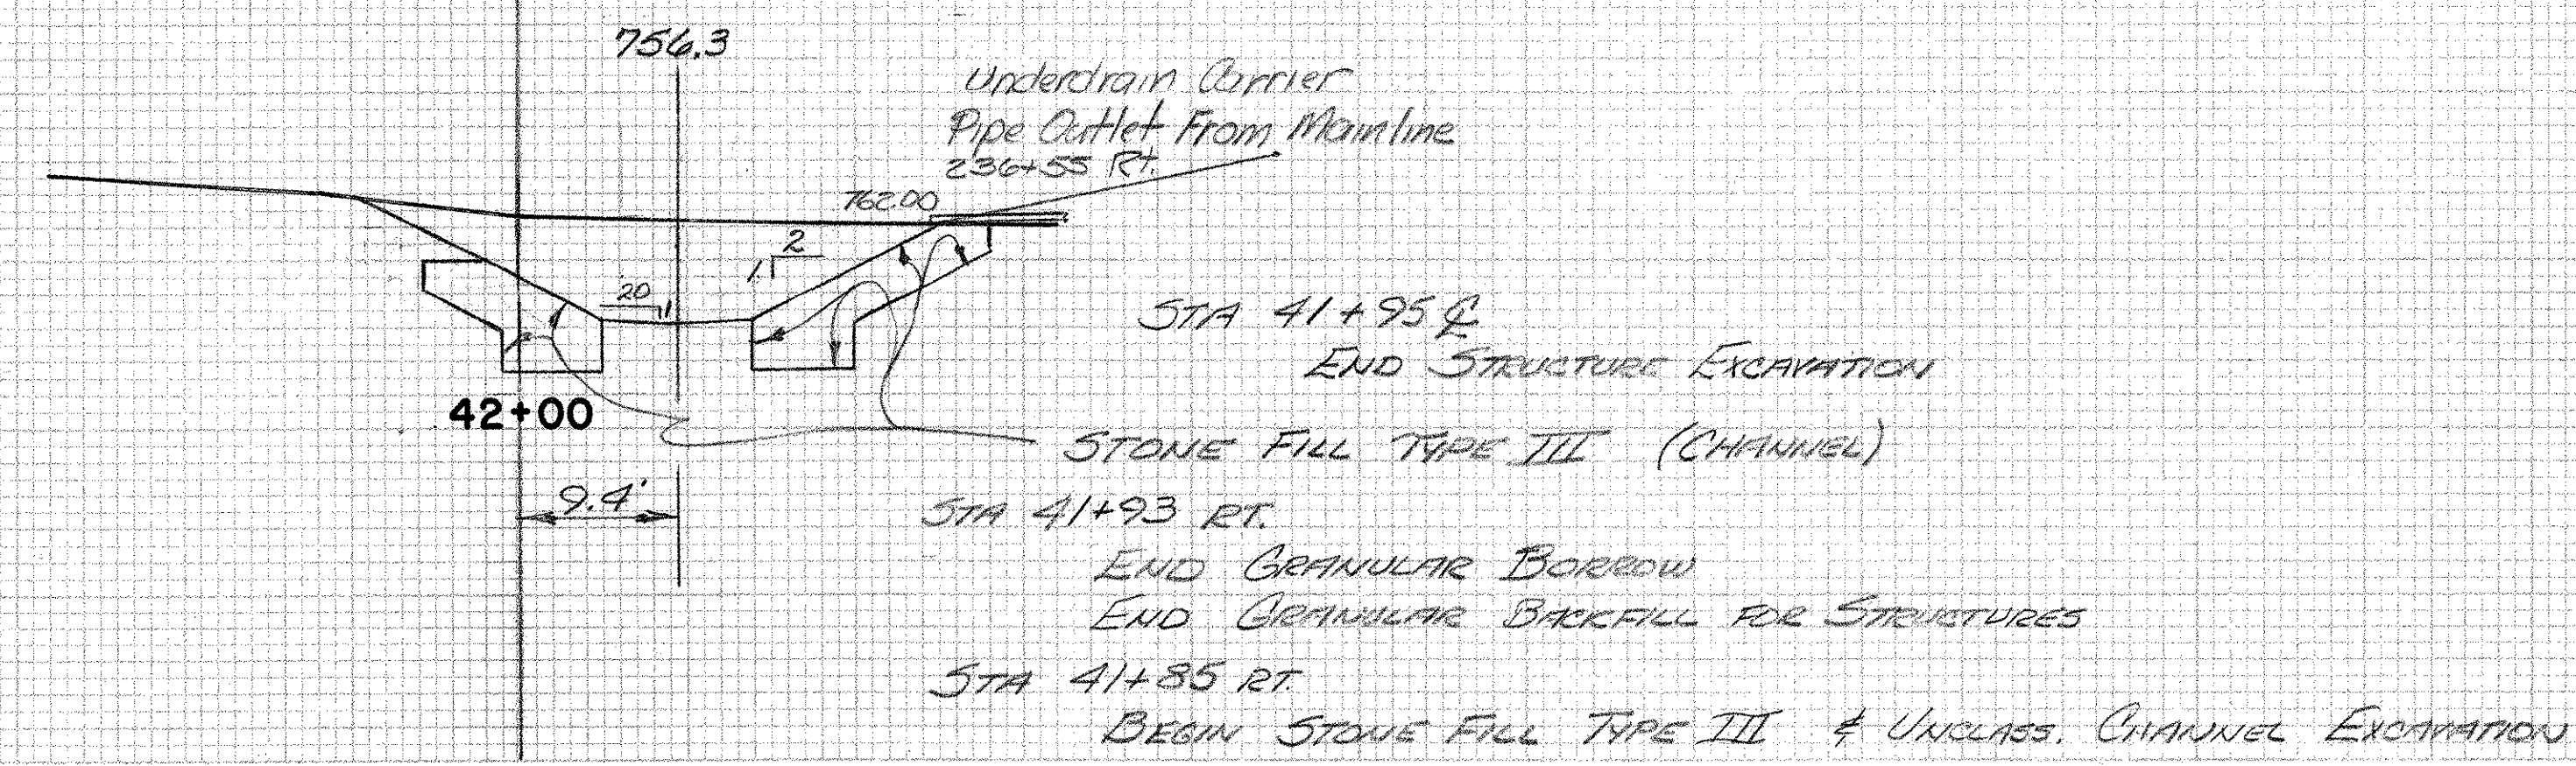 756.3
Underdrain Carrier
Pipe Outlet From Mainline
236+55 Rt.
762.00
2
1
20
1
STA 41+95 ℄
END STRUCTURE EXCAVATION
42+00
STONE FILL TYPE III (CHANNEL)
9.4'
STA 41+93 RT.
END GRANULAR BORROW
END GRANULAR BACKFILL FOR STRUCTURES
STA 41+85 RT.
BEGIN STONE FILL TYPE III & UNCLASS. CHANNEL EXCAVATION